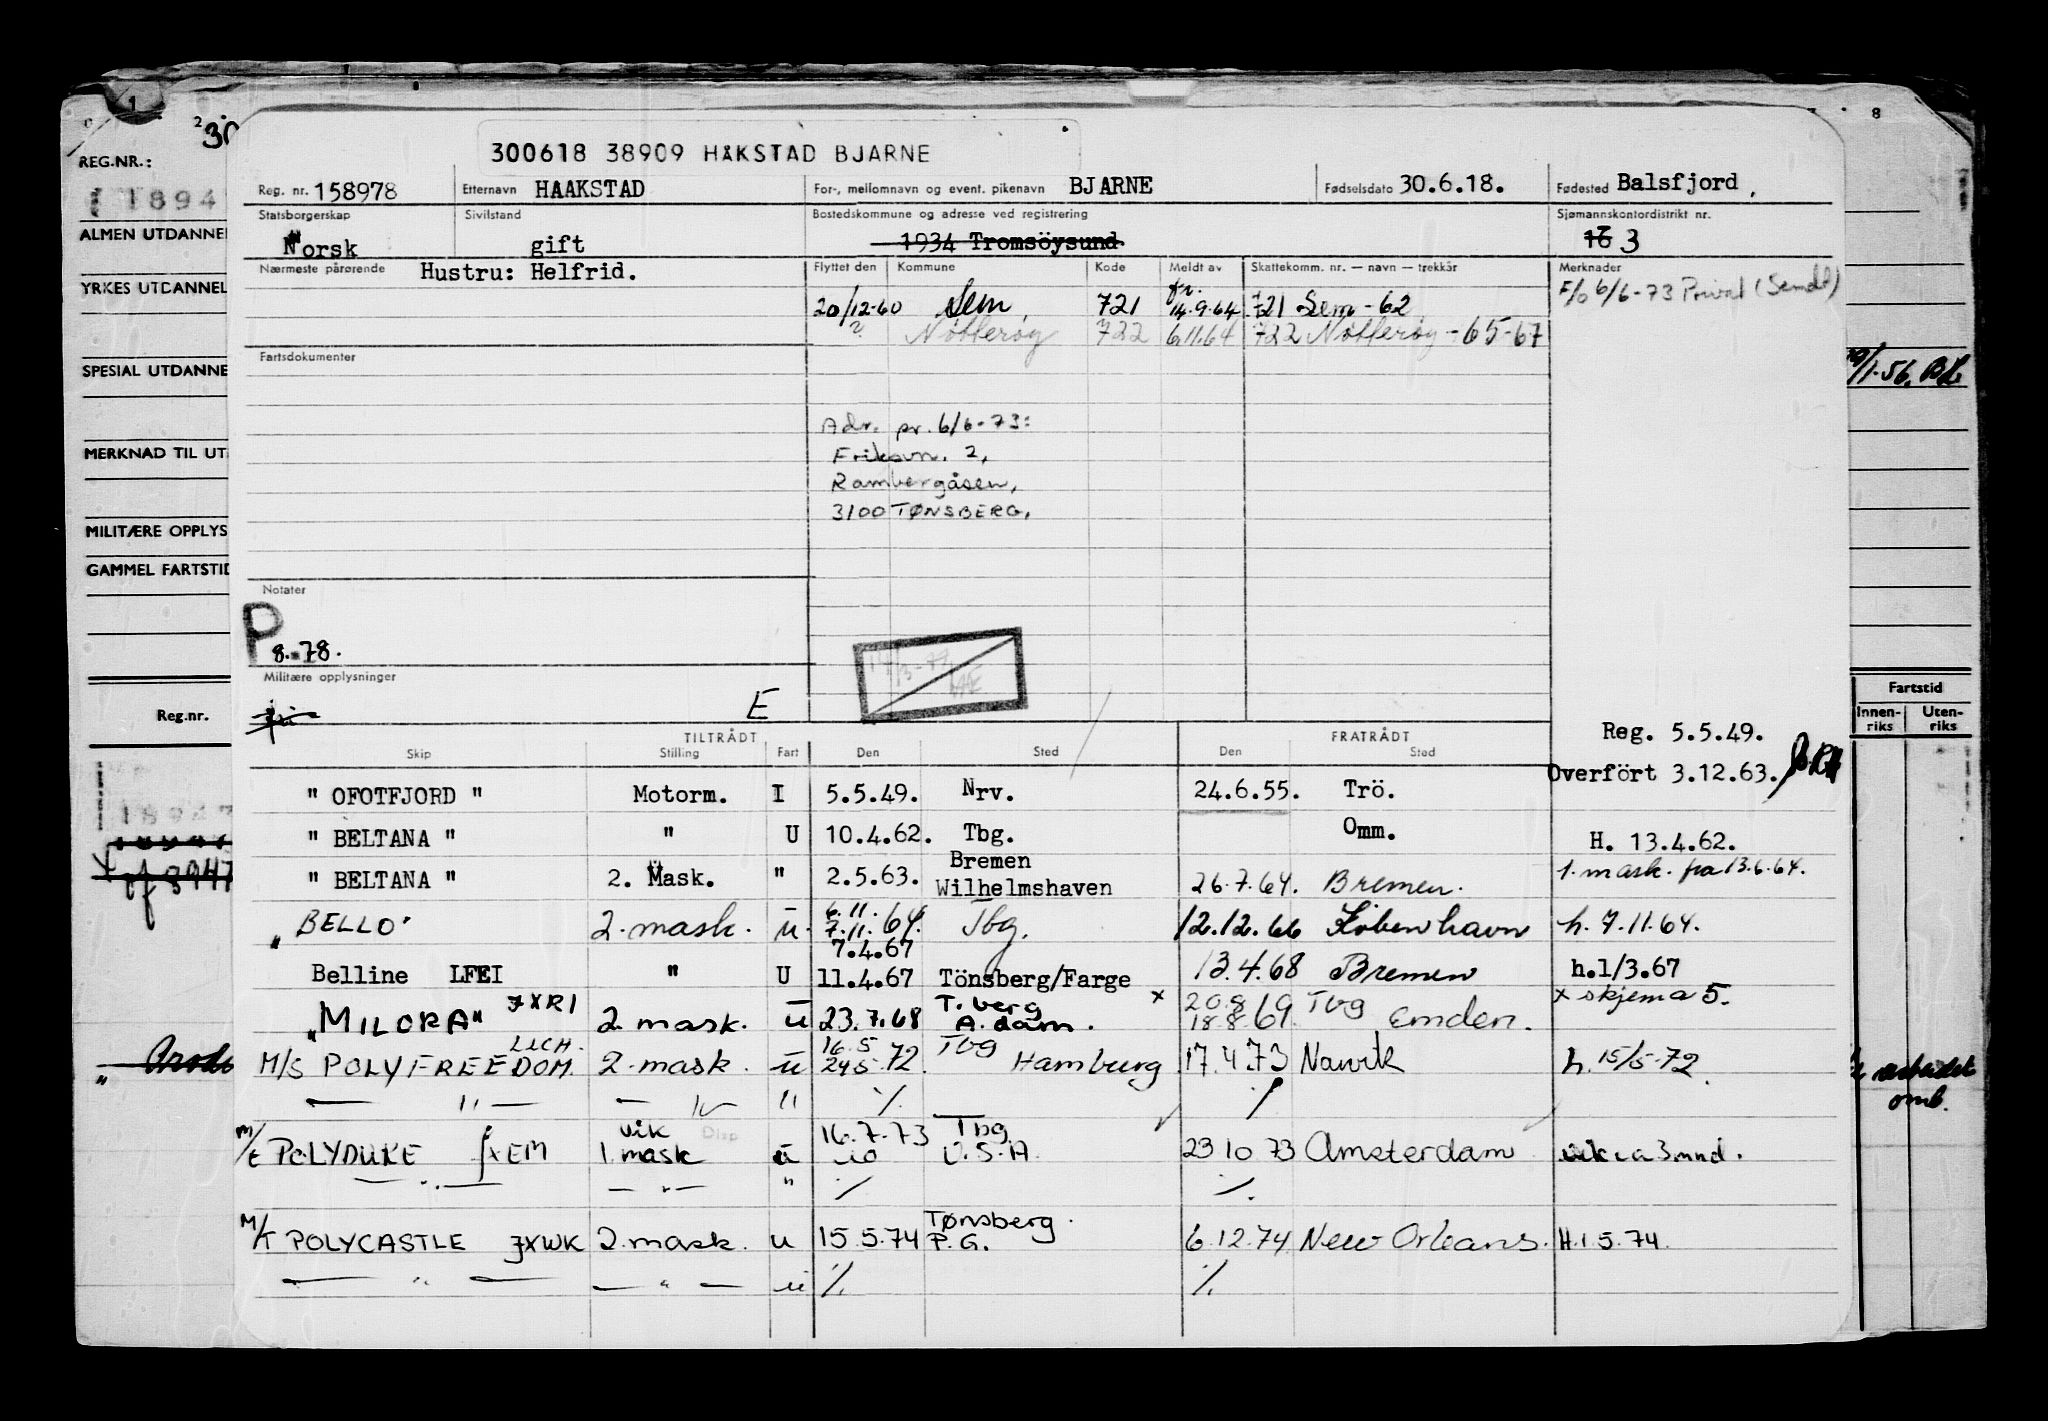 300618 38909 HÅKSTAD BJARNE
Reg. nr. 158978 Etternavn HAAKSTAD For-, mellomnavn og event. pikenavn BJARNE Fødselsdato 30.6.18. Fødested Balsfjord,
Statsborgerskap Sivilstand Bostedskommune og adresse ved registrering Sjømannskontordistrikt nr.
Norsk gift 1934 Tromsöysund 16 3
Nærmeste pårørende Hustru: Helfrid. Flyttet den Kommune Kode Meldt av Skattekomm. nr. — navn — trekkår Merknader
F/o 6/6-73 Privat (Sendt)
20/12-60 Sem, 721 fr. 14.9.64 721 Sem-62
? Nøtterøy 722 6.11.64 722 Nøtterøy-65-67
Fartsdokumenter
Adr. pr. 6/6-73:
Eriksvn. 2,
Rambergåsen,
3100 TØNSBERG.
Notater
P 8.-78.
Militære opplysninger
E
TILTRÅDT FRATRÅDT Reg. 5.5.49.
Skip Stilling Fart Den Sted Den Sted
Overfört 3.12.63.
" OFOTFJORD " Motorm. I 5.5.49. Nrv. 24.6.55. Trö.
" BELTANA " " U 10.4.62. Tbg. Omm. H. 13.4.62.
" BELTANA " 2. Mask. " 2.5.63. Bremen Wilhelmshaven 26.7.64. Bremen. 1. mask. fra 13.6.64.
"BELLO" 2. mask. u 6.11. 7.11.64. Tbg. 12.12.66 København h. 7.11.64.
Belline LFEI " U 7.4.67 11.4.67 Tönsberg/Farge 13.4.68 Bremen h.1/3.67
"MILORA" JXRI 2. mask. u 23.7.68 T.berg A.dam. x 20.8 18.8.69 Tbg Emden. x skjema 5.
M/S POLYFREEDOM LICH. 2. mask. u 16.5 24.5.72 Tbg Hamburg 17.4.73 Narvik h. 15/5-72
— " — — " — " ⁒ ⁒
M/T POLYDUKE JXEM vik 1. mask u 16.7.73 Tbg U.S.A. 23.10.73 Amsterdam vik ca 3 mnd.
— " — — " — " ⁒ ⁒
M/T POLYCASTLE JXWK 2. mask. u 15.5.74 Tønsberg. P.G. 6.12.74 New Orleans. H.1.5.74.
— " — — " — u ⁒ ⁒
1
2 30
REG.NR.:
1894
ALMEN UTDANNE
YRKES UTDANNEL
SPESIAL UTDANNE
MERKNAD TIL UT
MILITÆRE OPPLYS
GAMMEL FARTSTID
Reg.nr.
8
/1.56.
Fartstid
Innen-riks Uten-riks
arbeidet
omb.